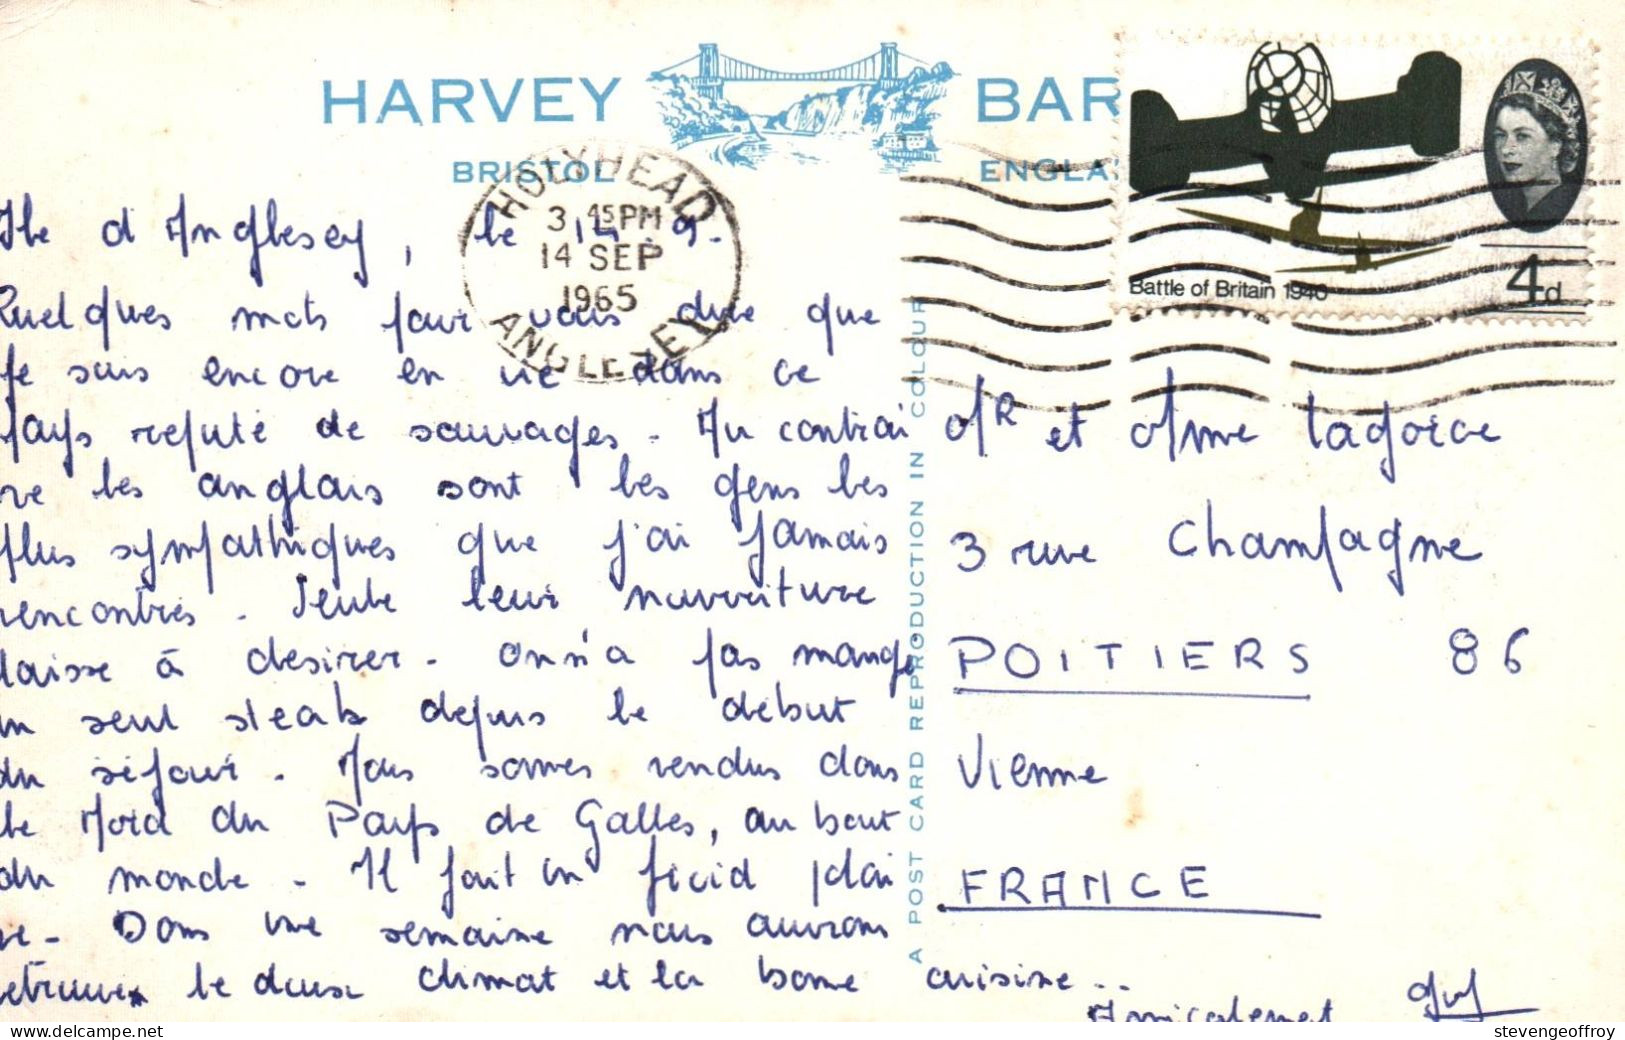 HARVEY BAR
BRISTOL ENGLA
HOLYHEAD
3 45 PM
14 SEP
1965
ANGLESEY
Battle of Britain 1940
4d
Ile d'Anglesey, le 14.9.
Quelques mots pour vous dire que
je suis encore en vie dans ce
pays réputé de sauvages. Au contrai
re les anglais sont les gens les
plus sympathiques que j'ai jamais
rencontrés. Seule leur nourriture
laisse à désirer. On n'a pas mangé
un seul steak depuis le début
du séjour. Nous sommes rendus dans
le Nord du Pays de Galles, au bout
du monde. Il fait un froid polai
re. Dans une semaine nous aurons
retrouver le doux climat et la bonne cuisine..
Amicalement Guy
A POST CARD REPRODUCTION IN COLOUR
Mr et Mme Lagorce
3 rue Champagne
POITIERS 86
Vienne
FRANCE
stevengeoffroy